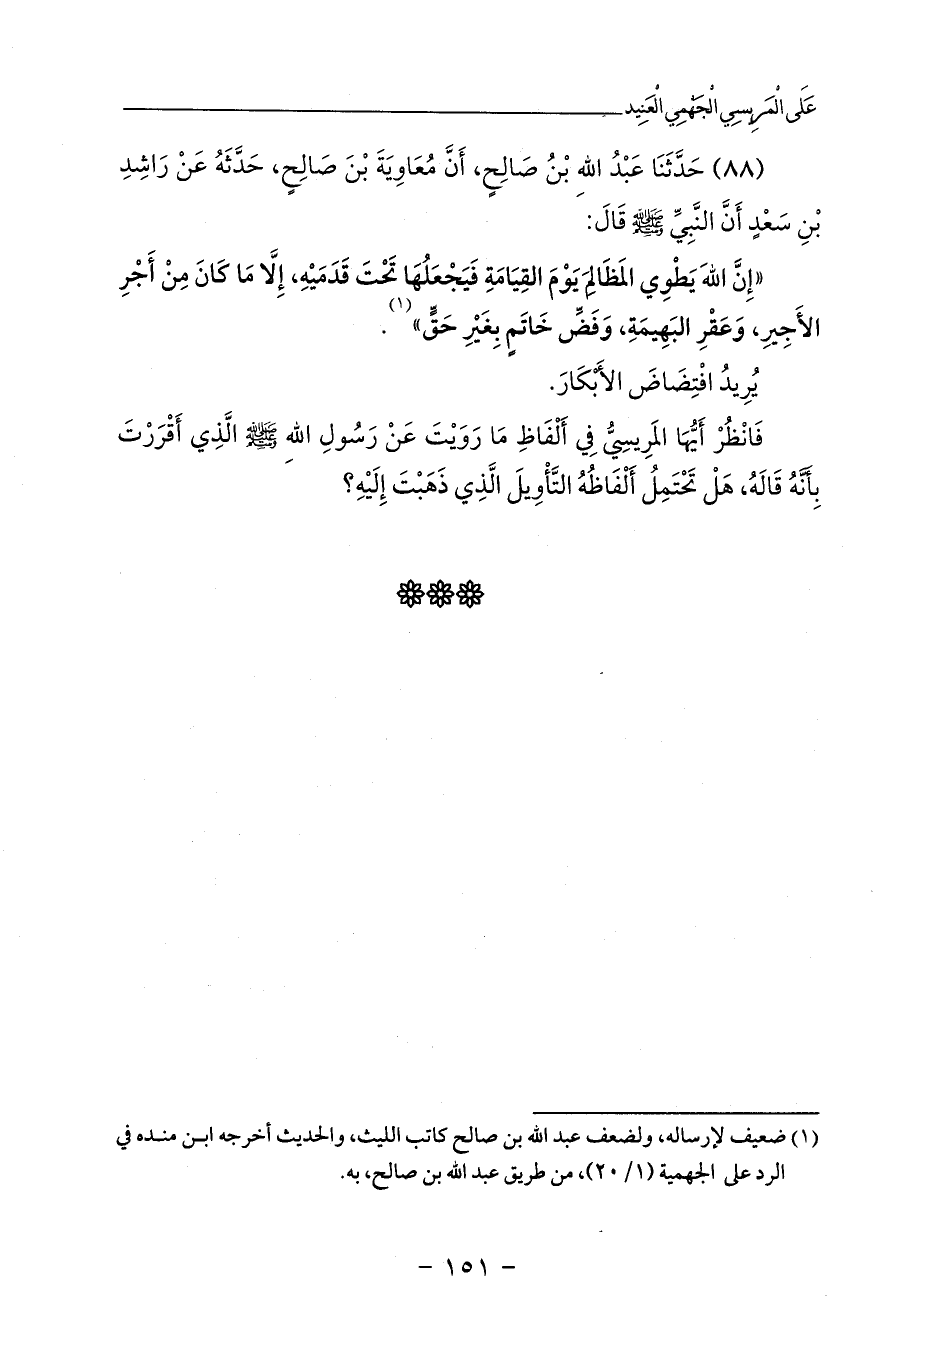 عَلَى الْمَرِيسِي الْجَهْمِي الْعَنِيد
(٨٨) حَدَّثَنَا عَبْدُ اللهِ بْنُ صَالِحٍ، أَنَّ مُعَاوِيَةَ بْنَ صَالِحٍ، حَدَّثَهُ عَنْ رَاشِدِ
بْنِ سَعْدٍ أَنَّ النَّبِيَّ ﷺ قَالَ:
«إِنَّ اللهَ يَطْوِي المَظَالِمَ يَوْمَ القِيَامَةِ فَيَجْعَلُهَا تَحْتَ قَدَمَيْهِ، إِلَّا مَا كَانَ مِنْ أَجْرِ
الأَجِيرِ، وَعَقْرِ البَهِيمَةِ، وَفَضِّ خَاتَمٍ بِغَيْرِ حَقٍّ»(١).
يُرِيدُ افْتِضَاضَ الأَبْكَارَ.
فَانْظُرْ أَيُّهَا المَرِيسِيُّ فِي أَلْفَاظِ مَا رَوَيْتَ عَنْ رَسُولِ اللهِ ﷺ الَّذِي أَقْرَرْتَ
بِأَنَّهُ قَالَهُ، هَلْ تَحْتَمِلُ أَلْفَاظُهُ التَّأْوِيلَ الَّذِي ذَهَبْتَ إِلَيْهِ؟
(١) ضعيف لإرساله، ولضعف عبد الله بن صالح كاتب الليث، والحديث أخرجه ابن منده في
الرد على الجهمية (١/ ٢٠)، من طريق عبد الله بن صالح، به.
- ١٥١ -